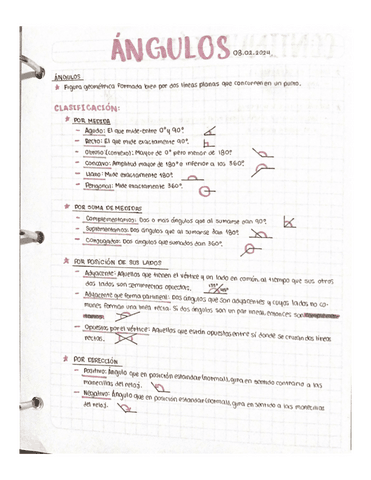 ÁNGULOS 03.02.2024
ÁNGULOS
Figura geométrica formada bien por dos líneas planas que concurren en un punto.
CLASIFICACIÓN:
POR MEDIDA
- Agudo: El que mide entre 0° y 90°.
- Recto: El que mide exactamente 90°.
- Obtuso (convexo): Mayor de 0° pero menor de 180°.
- Cóncavo: Amplitud mayor de 180° e inferior a los 360°.
- Llano: Mide exactamente 180°.
- Perigonal: Mide exactamente 360°.
POR SUMA DE MEDIDAS
- Complementarios: Dos o mas ángulos que al sumarse dan 90°.
- Suplementarios: Dos ángulos que al sumarse dan 180°.
- Conjugados: Dos ángulos que sumados dan 360°.
POR POSICIÓN DE SUS LADOS
- Adyacente: Aquellos que tienen el vértice y un lado en común, al tiempo que sus otros
dos lados son semirrectas opuestas.
- Adyacente que forma par lineal: Dos ángulos que son adyacentes y cuyos lados no co-
munes forman una línea recta. Si dos ángulos son un par lineal, entonces son
- Opuestos por el vértice: Aquellos que están opuestos entre sí donde se cruzan dos líneas
rectas.
POR DIRECCIÓN
- Positivo: Ángulo que en posición estándar (normal), gira en sentido contrario a las
manecillas del reloj.
- Negativo: Ángulo que en posición estándar (normal), gira en sentido a las manecillas
del reloj.